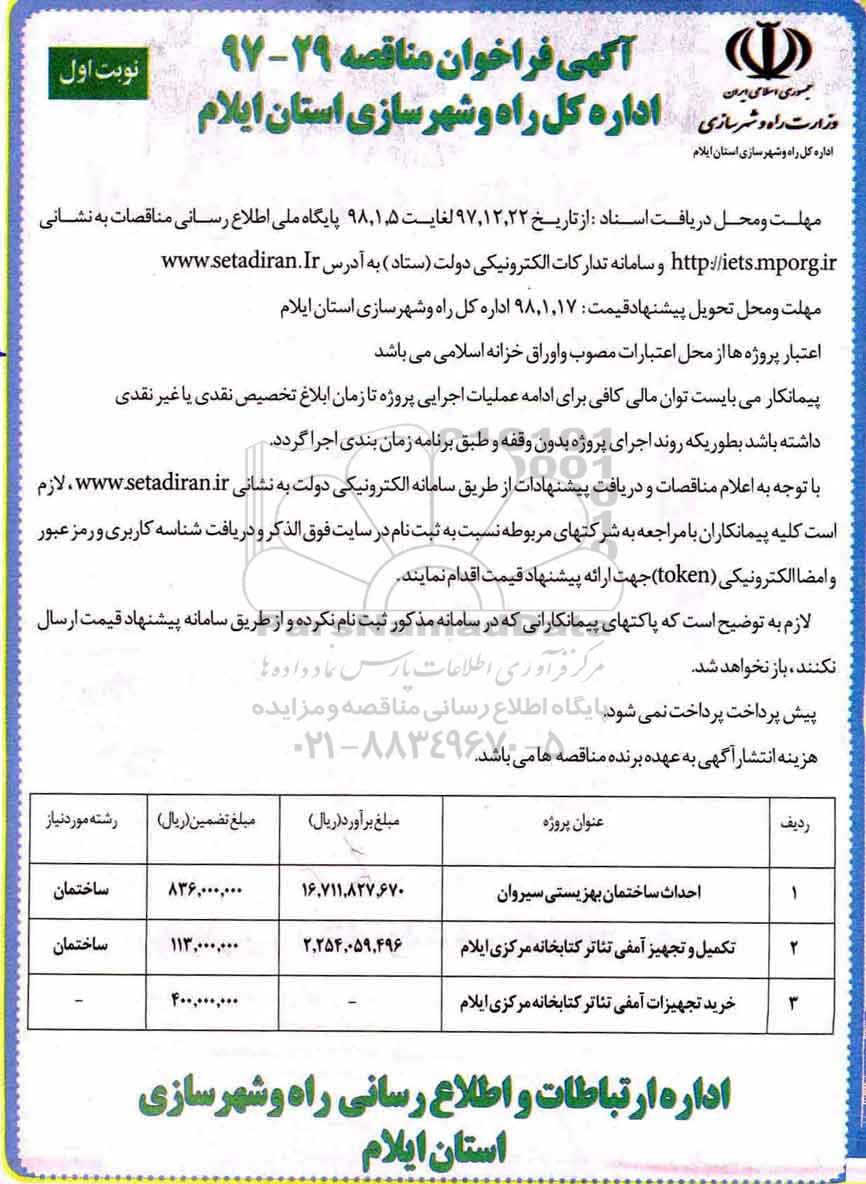 جمهوری اسلامی ایران
وزارت راه و شهرسازی
اداره کل راه وشهرسازی استان ایلام
آگهی فراخوان مناقصه ۲۹ - ۹۷
اداره کل راه وشهرسازی استان ایلام
نوبت اول
مهلت ومحل دریافت اسناد : از تاریخ ۹۷,۱۲,۲۲ لغایت ۹۸,۱,۵ پایگاه ملی اطلاع رسانی مناقصات به نشانی
http://iets.mporg.ir و سامانه تدارکات الکترونیکی دولت (ستاد) به آدرس www.setadiran.Ir
مهلت ومحل تحویل پیشنهادقیمت : ۹۸,۱,۱۷ اداره کل راه وشهرسازی استان ایلام
اعتبار پروژه ها از محل اعتبارات مصوب واوراق خزانه اسلامی می باشد
پیمانکار می بایست توان مالی کافی برای ادامه عملیات اجرایی پروژه تا زمان ابلاغ تخصیص نقدی یا غیر نقدی
داشته باشد بطوریکه روند اجرای پروژه بدون وقفه و طبق برنامه زمان بندی اجرا گردد.
با توجه به اعلام مناقصات و دریافت پیشنهادات از طریق سامانه الکترونیکی دولت به نشانی www.setadiran.ir ، لازم
است کلیه پیمانکاران با مراجعه به شرکتهای مربوطه نسبت به ثبت نام در سایت فوق الذکر و دریافت شناسه کاربری و رمز عبور
و امضا الکترونیکی (token) جهت ارائه پیشنهاد قیمت اقدام نمایند .
لازم به توضیح است که پاکتهای پیمانکارانی که در سامانه مذکور ثبت نام نکرده و از طریق سامانه پیشنهاد قیمت ارسال
نکنند ، باز نخواهد شد.
پیش پرداخت پرداخت نمی شود.
هزینه انتشار آگهی به عهده برنده مناقصه ها می باشد.
ParsNamadData
مرکز فرآوری اطلاعات پارس نماد داده ها
پایگاه اطلاع رسانی مناقصه و مزایده
۰۲۱-۸۸۳۴۹۶۷۰-۵
ردیف عنوان پروژه مبلغ برآورد(ریال) مبلغ تضمین(ریال) رشته موردنیاز
۱ احداث ساختمان بهزیستی سیروان ۱۶,۷۱۱,۸۲۷,۶۷۰ ۸۳۶,۰۰۰,۰۰۰ ساختمان
۲ تکمیل و تجهیز آمفی تئاتر کتابخانه مرکزی ایلام ۲,۲۵۴,۰۵۹,۴۹۶ ۱۱۳,۰۰۰,۰۰۰ ساختمان
۳ خرید تجهیزات آمفی تئاتر کتابخانه مرکزی ایلام - ۴۰۰,۰۰۰,۰۰۰ -
اداره ارتباطات و اطلاع رسانی راه وشهرسازی
استان ایلام